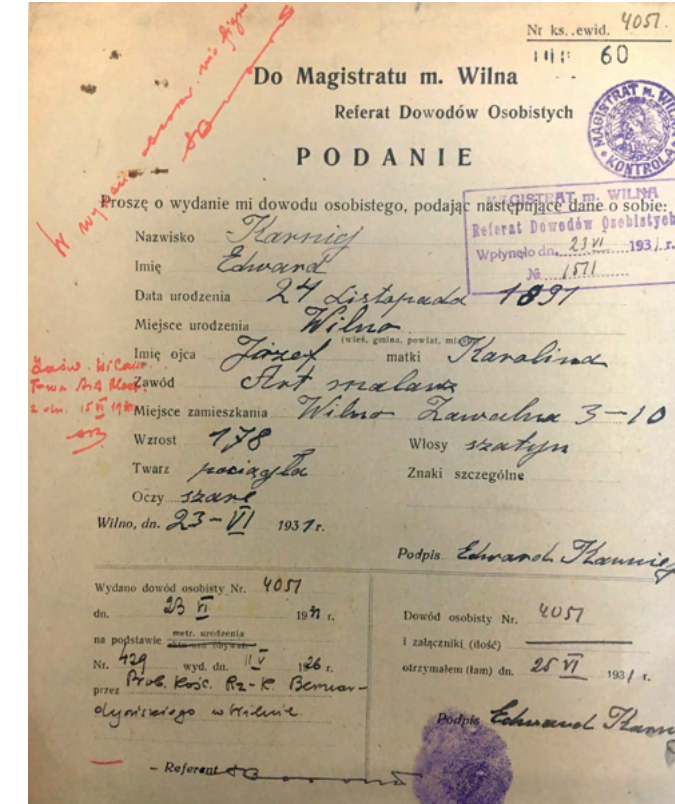 Nr ks. ewid. 4051.
60
Do Magistratu m. Wilna
Referat Dowodów Osobistych
MAGISTRAT M. WILNA
KONTROLA
PODANIE
Proszę o wydanie mi dowodu osobistego, podając następujące dane o sobie:
MAGISTRAT m. WILNA
Referat Dowodów Osobistych
Wpłynęło dn. 23 VI 1931 r.
№ 1511
Nazwisko Karniej
Imię Edward
Data urodzenia 24 Listopada 1891
Miejsce urodzenia Wilno
(wieś, gmina, powiat, miasto)
Imię ojca Józef matki Karolina
Zawód Art malarz
Miejsce zamieszkania Wilno Zawalna 3-10
Wzrost 178 Włosy szatyn
Twarz pociągła Znaki szczególne
Oczy szare
Wilno, dn. 23-VI 1931 r.
Podpis Edward Karniej
W wydaniu
Wydano dowód osobisty Nr. 4051
dn. 23 VI 1931 r.
na podstawie metr. urodzenia
Nr. 429 wyd. dn. II V 1926 r.
przez Prob. Kość. Rz-K. Bernar-
dyńskiego w Wilnie.
- Referent
Dowód osobisty Nr. 4051
i załączniki (ilość)
otrzymałem (łam) dn. 25 VI 1931 r.
Podpis Edward Karni